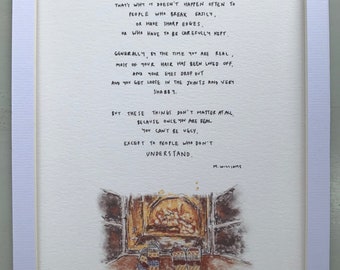 THAT'S WHY IT DOESN'T HAPPEN OFTEN TO
PEOPLE WHO BREAK EASILY,
OR HAVE SHARP EDGES,
OR WHO HAVE TO BE CAREFULLY KEPT.
GENERALLY, BY THE TIME YOU ARE REAL,
MOST OF YOUR HAIR HAS BEEN LOVED OFF,
AND YOUR EYES DROP OUT
AND YOU GET LOOSE IN THE JOINTS AND VERY
SHABBY.
BUT THESE THINGS DON'T MATTER AT ALL,
BECAUSE ONCE YOU ARE REAL
YOU CAN'T BE UGLY,
EXCEPT TO PEOPLE WHO DON'T
UNDERSTAND.
M. WILLIAMS